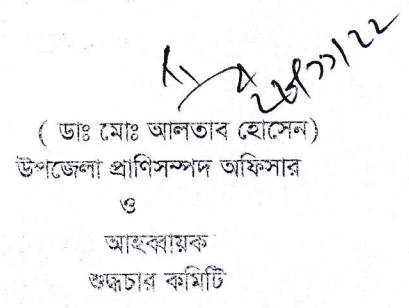 ( ডাঃ মোঃ আলতাব হোসেন)
উপজেলা প্রাণিসম্পদ অফিসার
ও
আহব্বায়ক
শুদ্ধচার কমিটি